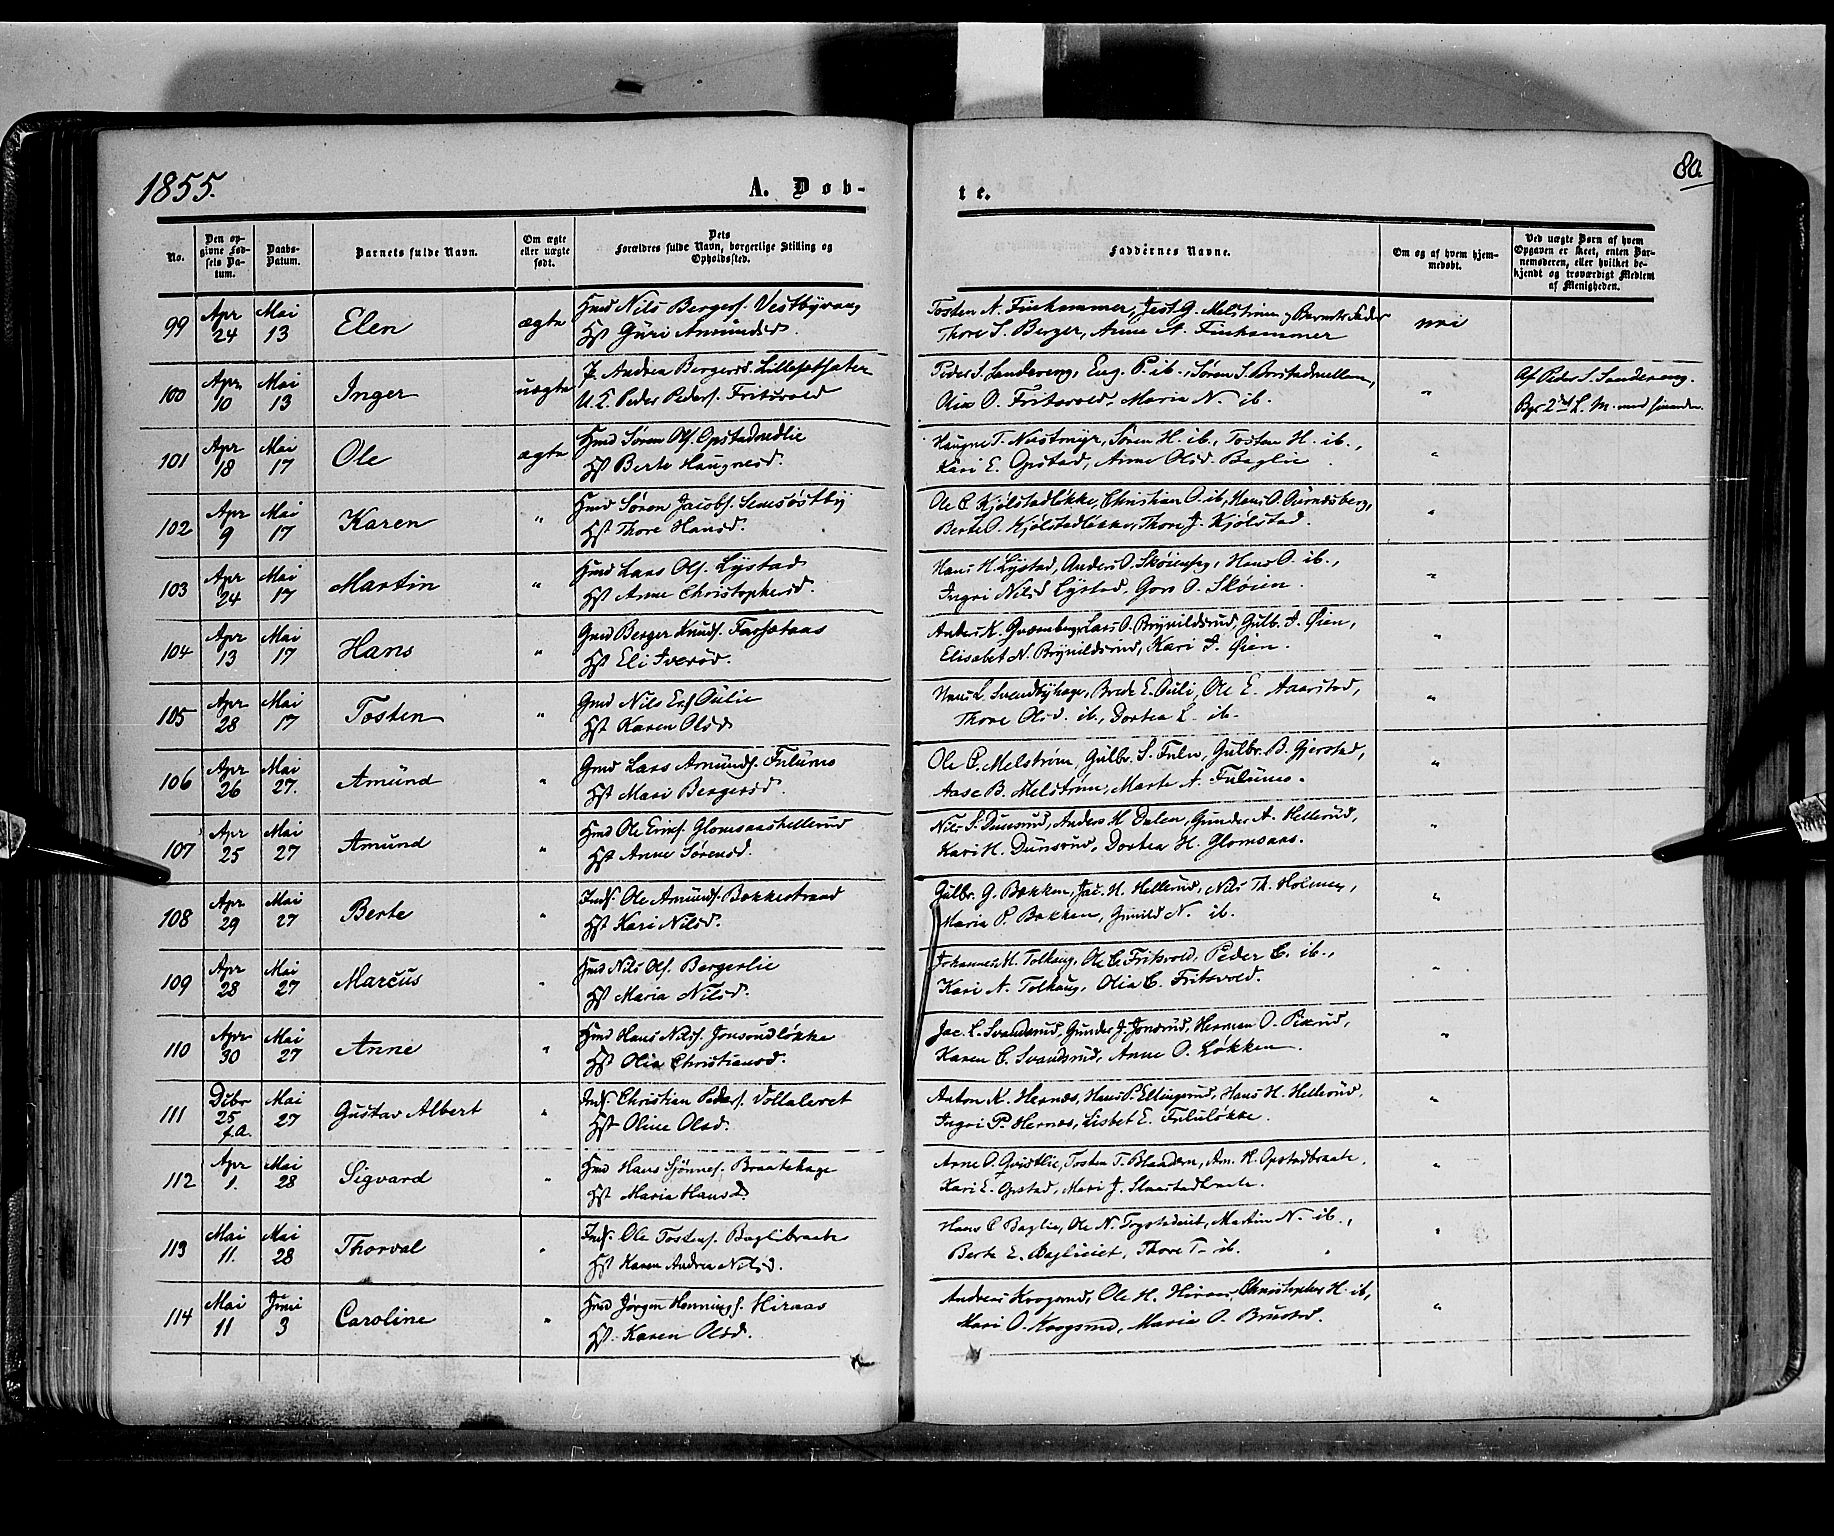 1855.
A. Døb-
te.
80
No.
Den opgivne Fødsels Datum.
Daabs-Datum.
Barnets fulde Navn.
Om ægte eller uægte født.
Dets Forældres fulde Navn, borgerlige Stilling og Opholdssted.
Faddernes Navne.
Om og af hvem hjemmedøbt.
Ved uægte Børn af hvem Opgaven er skeet, enten Barnemoderen, eller hvilket bekjendt og troværdigt Medlem af Menigheden.
99 Apr 24 Mai 13 Elen ægte Hmd Nils Bergers. Vestbyvang
Hst Guri Amundsd.
Tosten A. Finhammer, Jost G. Melstrøm,
Thore S. Berger, Anne A. Finhammer
nei
100 Apr 10 Mai 13 Inger uægte P. Andrea Bergersd. Lillesætsæter
U. K. Peder Peders. Fritsvold
Peder S. Sandereng, Eng. P. ib., Søren S. Borstadmellem,
Olia O. Fritsvold, Maria N. ib.
"
Af Peder S. Sandereng.
101 Apr 18 Mai 17 Ole ægte Hmd Søren Ols. Opstadnedlie
Hst Berte Haugnesd.
Haugne T. Næstmyr, Søren H. ib., Tosten H. ib.,
Kari E. Opstad, Anne Olsd. Baglie
"
102 Apr 9 Mai 17 Karen " Hmd Søren Jacobs.
Hst Thore Hansd.
Ole C. Kjølstadløkke, Christian O. ib, Hans O.
Berte O. Kjølstadløkke, Thore J. Kjølstad.
"
103 Apr 24 Mai 17 Martin " Hmd Lars Ols. Lystad
Hst Anne Christophersd.
Hans H. Lystad, Anders O. Skøien, Hans O. ib.,
Ingri Nilsd Lystad, Goro O. Skøien.
"
104 Apr 13 Mai 17 Hans " Gmd Berger Knuds. Farsætaas
Hst Eli Iversd.
Anders K. Lars O. Brynildsrud, Gulb. I. Øien,
Elisabet N. Brynildsrud, Kari I. Øien.
"
105 Apr 28 Mai 17 Tosten " Gmd Nils Ers Aulie
Hst Karen Olsd
Hans L. Svendbyhage, Brede E. Auli, Ole E. Aarstad,
Thore Olsd. ib., Dortea L. ib.
"
106 Apr 26 Mai 27. Amund " Gmd Lars Amunds. Fulumo
Hst Mari Bergersd.
Ole P. Melstrøm, Gulbr. S. Fulu, Gulbr. B. Gjerstad,
Aase B. Melstrøm, Marte A. Fulumo.
"
107 Apr 25 Mai 27 Amund " Hmd Ole Eriks. Glomsaashellerud
Hst Anne Sørensd.
Nils S. Dunsrud, Anders H. Dalen, Gunder A. Hellerud,
Kari H. Dunsrud, Dortea H. Glomsaas.
"
108 Apr 29 Mai 27 Berte " Inds. Ole Amunds. Bakkestrand
Hst Kari Nilsd.
Gulbr. G. Bakken, Jac. H. Hellerud, Nils Th. Holmen,
Maria P. Bakken, Gunild N. ib.
"
109 Apr 28 Mai 27 Marcus " Hmd Nils Ols. Bergerlie
Hst Maria Nilsd.
Johannes M. Tolhaug, Ole C. Fritsvold, Peder C. ib.,
Kari A. Tolhaug, Olia C. Fritsvold.
"
110 Apr 30 Mai 27 Anne " Hmd Hans Nils. Jonsrudløkke
Hst Olia Christiansd.
Jac. L. Svandsrud, Gunder J. Jonsrud, Herman O.
Karen C. Svandsrud, Anne O. Løkken.
"
111 Dcbr 25 f.A. Mai 27 Gustav Albert " Inds Christian Peders.
Hst Oline Olsd.
Anton K. Hernæs, Hans P. Ellingsrud, Hans H. Hellerud,
Ingri P. Hernæs, Lisbet E. Fululøkke.
"
112 Apr 1. Mai 28 Sigvard " Hmd Hans Braatehage
Hst Maria Hansd.
Arne O. Qvistlie, Tosten T. Am. H. Opstadbraate,
Kari E. Opstad, Mari J.
"
113 Mai 11. Mai 28 Thorval " Inds. Ole Tostens. Baglibraate
Hst Karen Andrea Nilsd.
Hans C. Baglie, Ole N. Martin N. ib.,
Berte E. Thore T. ib.
"
114 Mai 11 Juni 3 Caroline " Hmd Jørgen Hennings. Hiraas
Hst. Karen Olsd.
Andreas Krogsrud, Ole H. Hiraas, Christopher H. ib,
Mari O. Krogsrud, Maria O. Brustad.
"